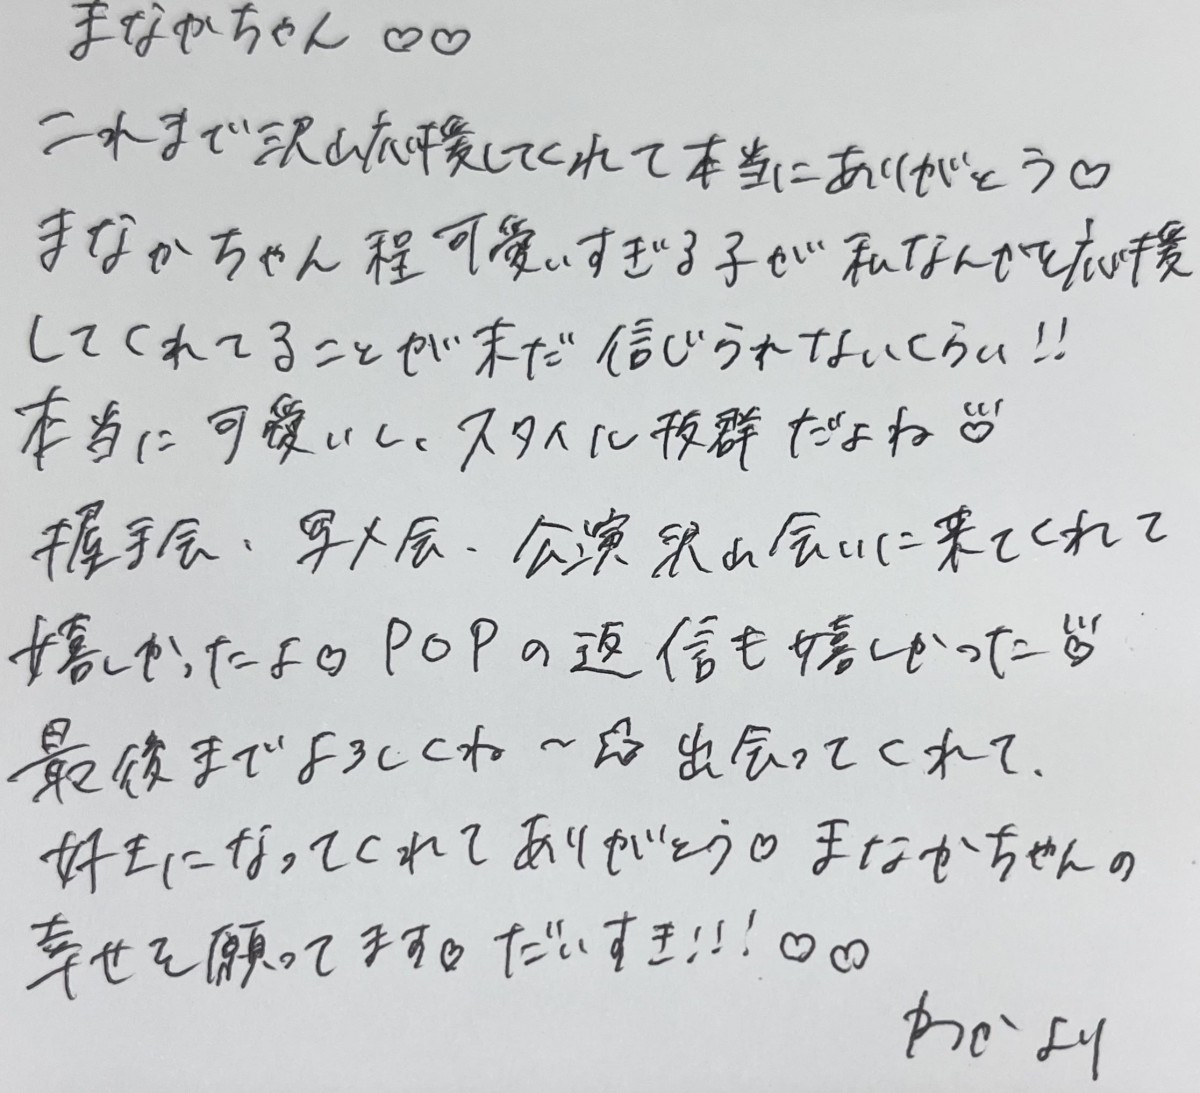 まなかちゃん♡♡
これまで沢山応援してくれて本当にありがとう♡
まなかちゃん程可愛いすぎる子が私なんかを応援
してくれてることが未だ信じられないくらい!!
本当に可愛いし、スタイル抜群だよね♡
握手会、写メ会、公演沢山会いに来てくれて
嬉しかったよ♡POPの返信も嬉しかった♡
最後までよろしくね〜☆出会ってくれて、
好きになってくれてありがとう♡まなかちゃんの
幸せを願ってます♡だいすき!!!♡♡
より